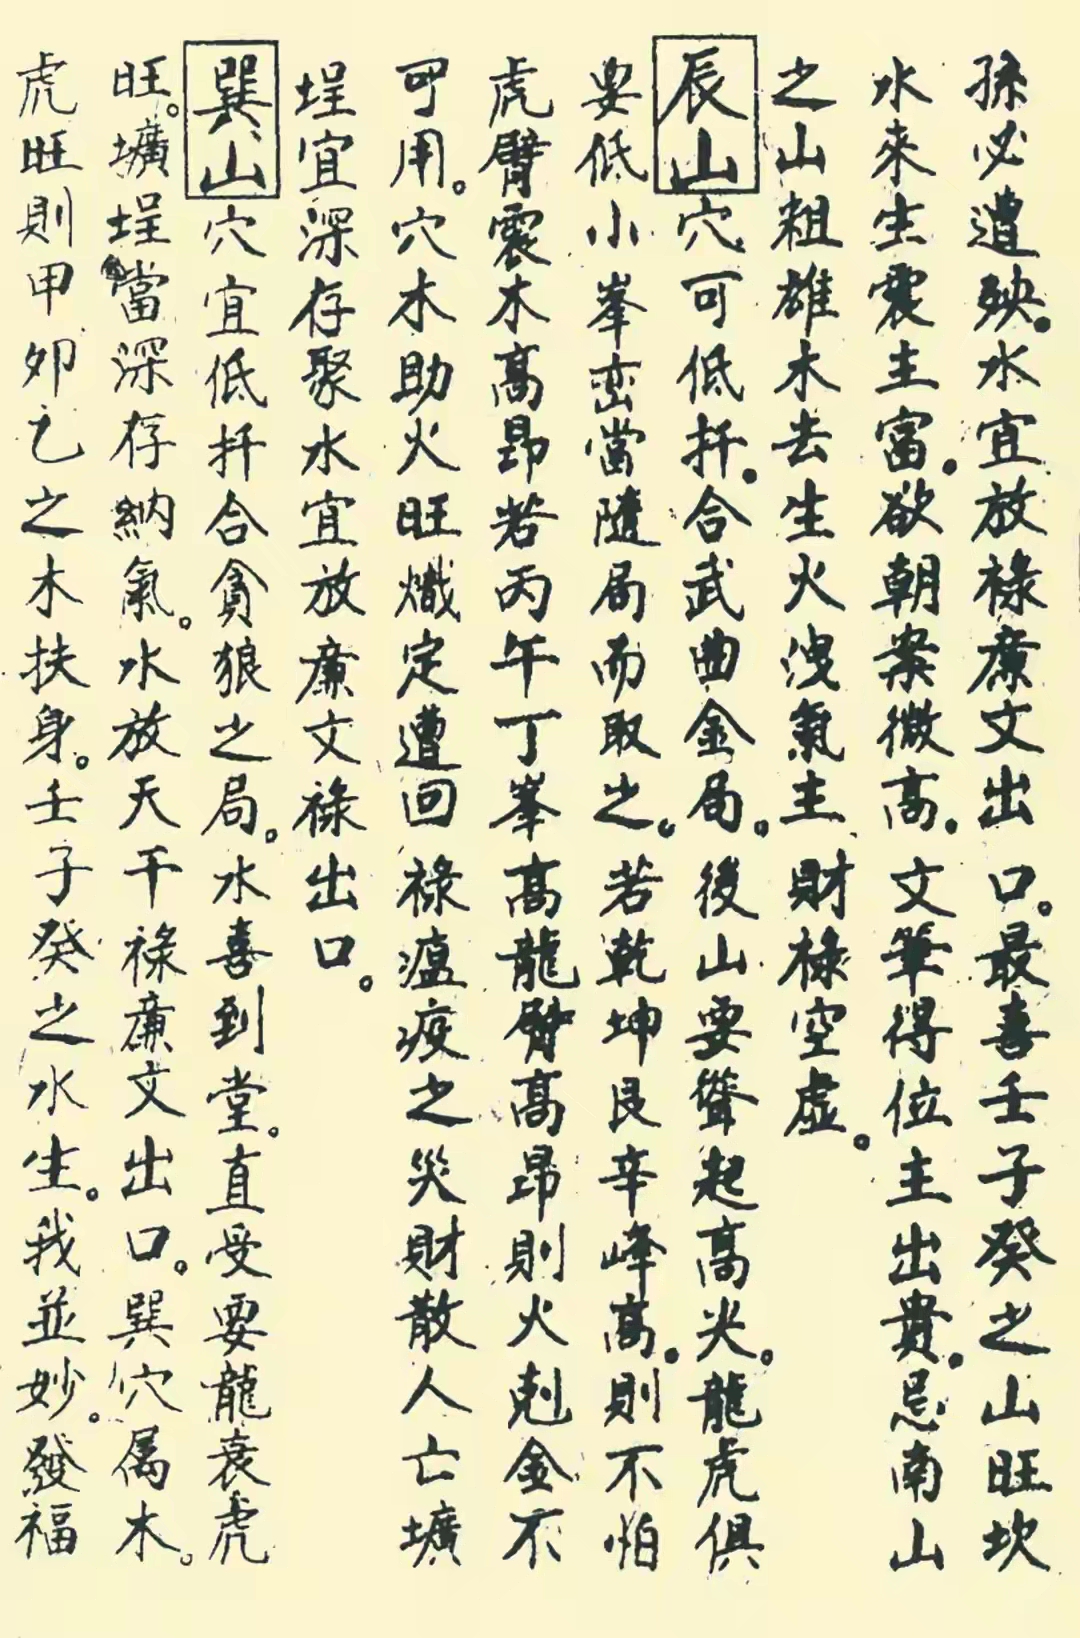 孫必遭殃。水宜放祿廉文出口。最喜壬子癸之山旺坎
水來生震主富。欲朝案微高。文筆得位主出貴。忌南山
之山粗雄木去生火洩氣主財祿空虛。
辰山穴可低扦。合武曲金局。後山要聳起高尖。龍虎俱
要低小峯巒當隨局而取之。若乾坤艮辛峰高。則不怕
虎臂震木高昂若丙午丁峯高龍臂高昂則火剋金不
可用。穴木助火旺熾定遭回祿瘟疫之災財散人亡壙
埕宜深存聚水宜放廉文祿出口。
巽山穴宜低扦合貪狼之局。水喜到堂。直受要龍衰虎
旺。壙埕當深存納氣。水放天干祿廉文出口。巽穴属木。
虎旺則甲卯乙之木扶身。壬子癸之水生。我並妙。發福